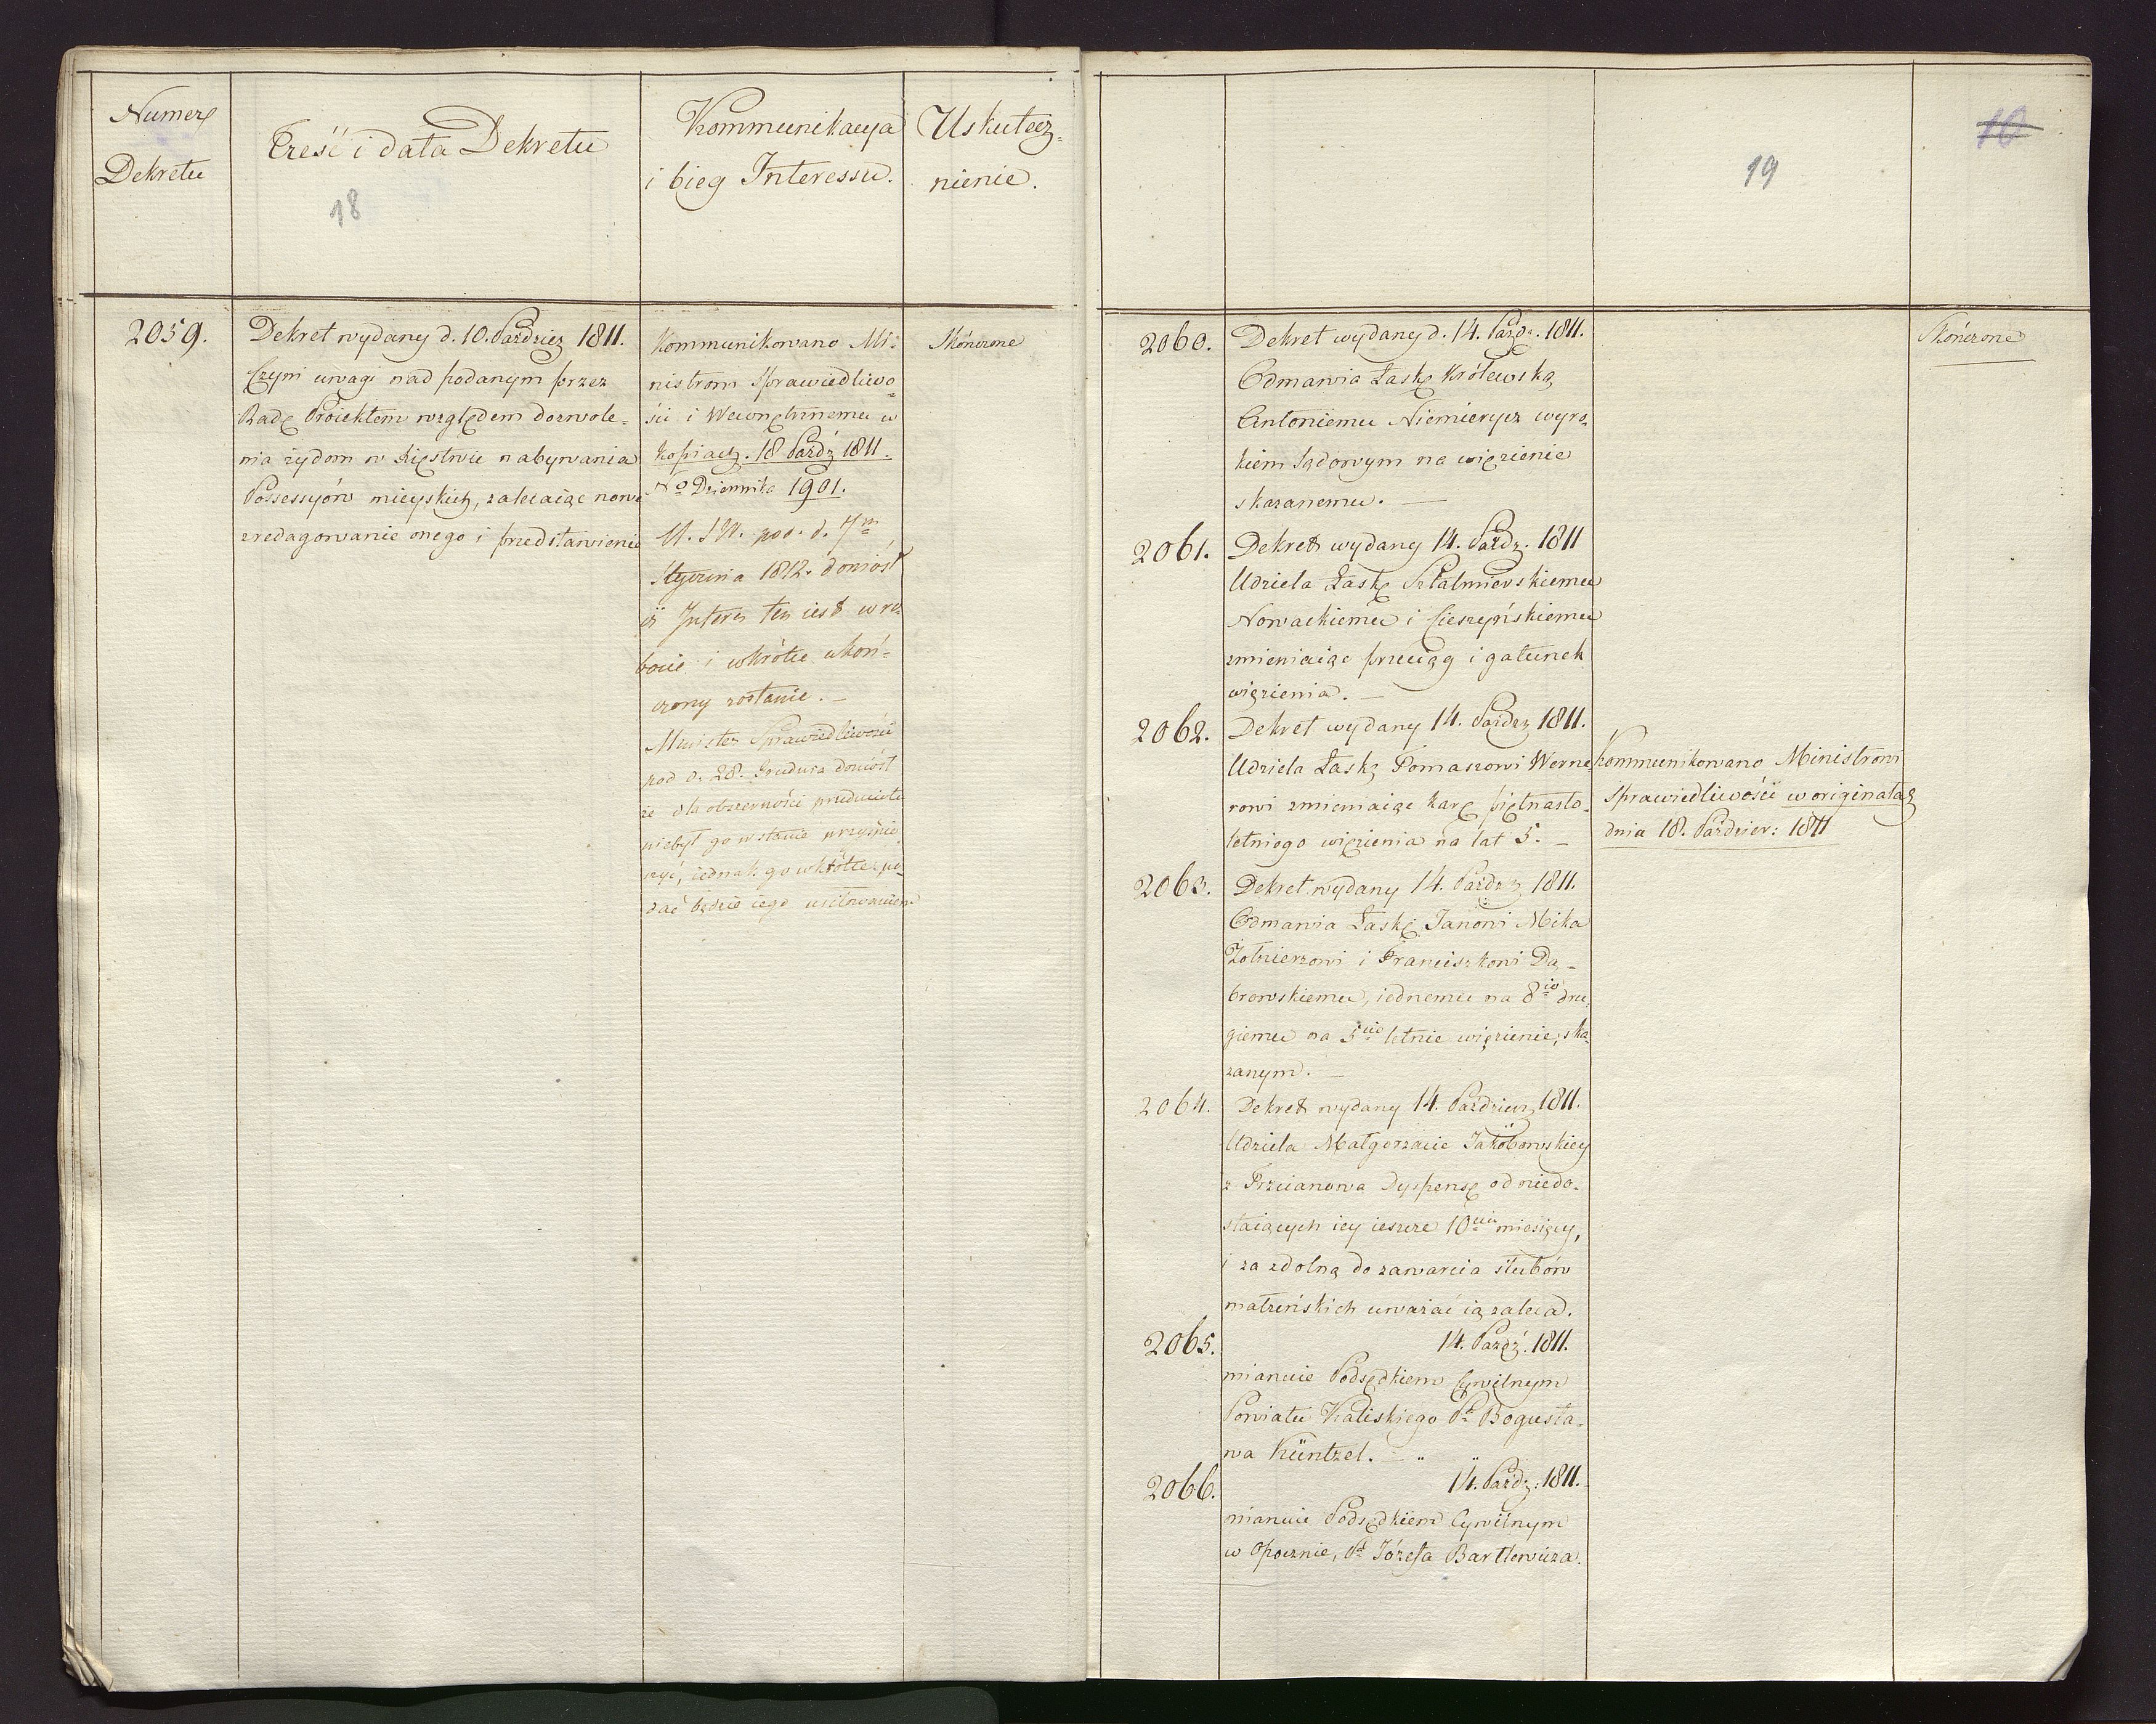 Numer
Dekretu
Treść i data Dekretu
Kommunikacya
i bieg Interessu.
Uskutecz-
nienie.
18
2059.
Dekret wydany d. 10. Paździer 1811.
Czyni uwagi nad podanym przez
Radę Proiektem względem dozwole-
nia żydom w Xięstwie nabywania
Possessyów mieyskich, zalecaiąc nowe
zredagowanie onego i przedstawienie
Kommunikowano Mi-
nistrom Sprawiedliwo-
ści i Wewnętrznemu w
kopiach. 18 Paźdź 1811.
No Dziennika 1901.
M. S W. pod d. 7m
Stycznia 1812. doniósł
iż Interes ten iest w ro-
bocie i wkrótce ukoń-
czony zostanie. —
Minister Sprawiedliwości
pod d. 28. Grudnia doniósł
że dla obszerności przedmiotu
niebył go w stanie przyśpie-
szyć, iednak go wkrótce po-
dać będzie iego usiłowaniem
Skończone
19
10
2060.
Dekret wydany d. 14. Paźdz. 1811.
Odmawia Łaskę Królewską
Antoniemu Niemierycz wyro-
kiem Sądowym na więzienie
skazanemu. —
Skończone
2061.
Dekret wydany 14. Paźdz. 1811
Udziela Łaskę Sztalmierskiemu
Nowackiemu i Cieszyńskiemu
zmieniaiąc przeciąg i gatunek
więzienia. —
2062.
Dekret wydany 14. Paźdz 1811.
Udziela Łaskę Tomaszowi Werne-
rowi zmieniaiąc karę piętnasto-
letniego więzienia na lat 5. —
Kommunikowano Ministrowi
Sprawiedliwości w originałach
dnia 18. Paździer: 1811
2063.
Dekret wydany 14. Paźdz 1811.
Odmawia Łaskę Janowi Mika
Żołnierzowi i Franciszkowi Dą-
browskiemu, iednemu na 8io dru-
giemu na 5cio letnie więzienie, ska-
zanym. —
2064.
Dekret wydany 14. Paździer 1811.
Udziela Małgorzacie Jakóbowskiey
z Trzcianowa Dyspensę od niedo-
staiących iey ieszcze 10ciu miesięcy,
i za zdolną do zawarcia ślubów
małżeńskich uważać ią zaleca.
2065.
14. Paźdź. 1811.
mianuie Podsędkiem Cywilnym
Powiatu Kaliskiego Pa Bogusła-
wa Küntzel. —
2066.
14. Paźdz: 1811.
mianuie Podsędkiem Cywilnym
w Opocznie, Pa Józefa Bartlewicza.